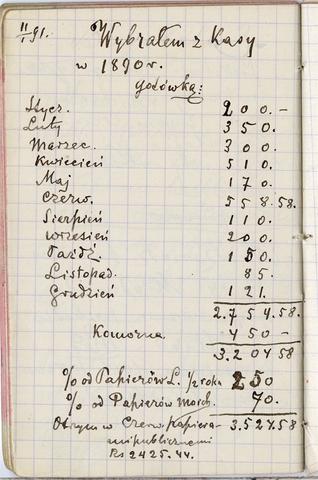 11/I 91.
Wybrałem z Kasy
w 1890 r.
gotówką:
Stycz. 200.-
Luty 350.
Marzec. 300.
Kwiecień 510.
Maj 170.
Czerw. 558.58.
Sierpień 110.
Wrzesień 200.
Paźdź. 150.
Listopad. 85.
Grudzień 121.
2.754.58.
Komorna 450 -
3.204 58
% od Papierów L. 1/2 roku 250
% od Papierów 70.
Otrzym w Czerw papiera- 3.524.58
mi publicznemi
Rs 2425.44.